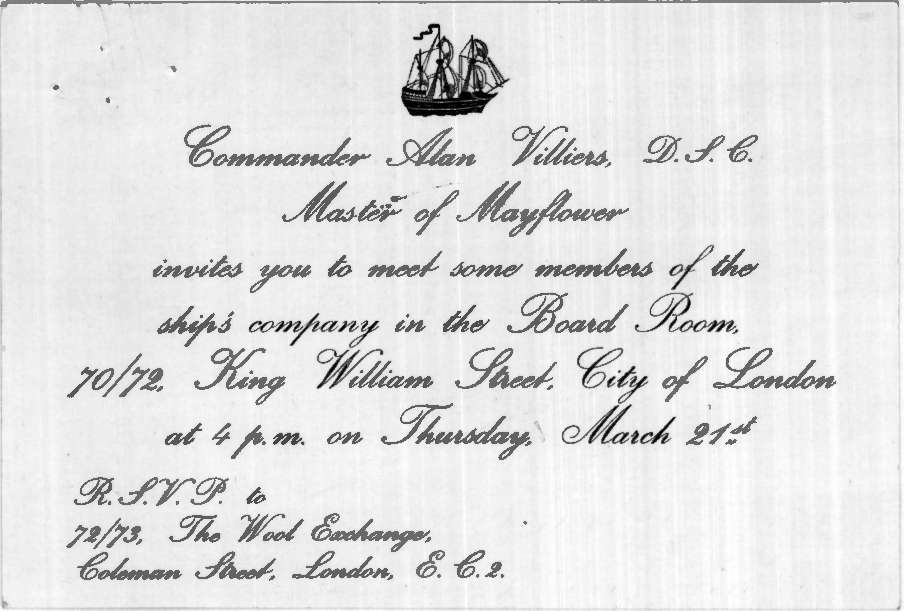 Commander Alan Villiers, D.S.C.
Master of Mayflower
invites you to meet some members of the
ship's company in the Board Room,
70/72, King William Street, City of London
at 4 p.m. on Thursday, March 21st
R.S.V.P. to
72/73, The Wool Exchange,
Coleman Street, London, E.C.2.